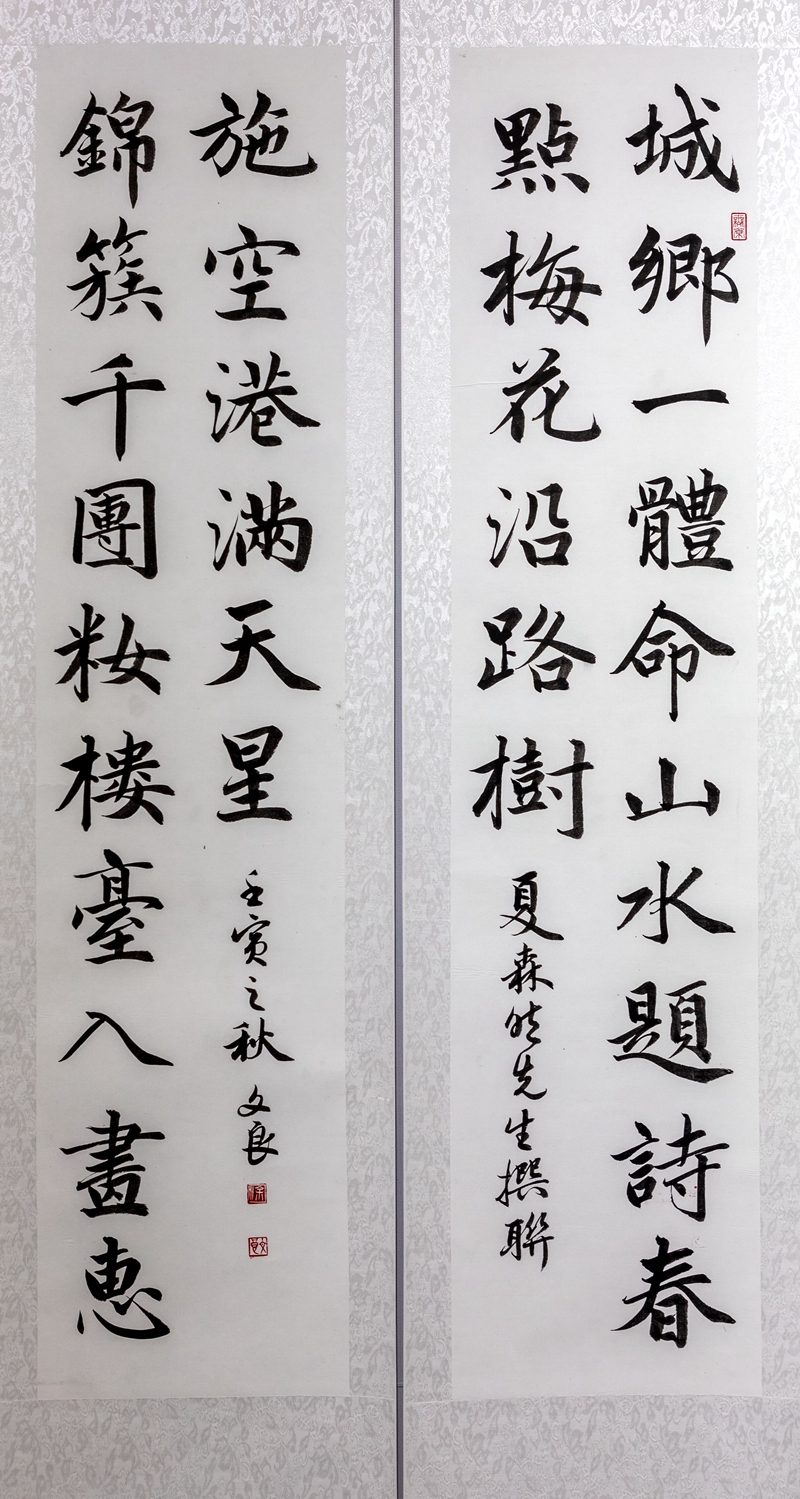 城鄉一體命山水題詩春
點梅花沿路樹
夏森然先生撰聯
錦簇千團籹樓臺入畫惠
施空港滿天星
壬寅之秋 文良